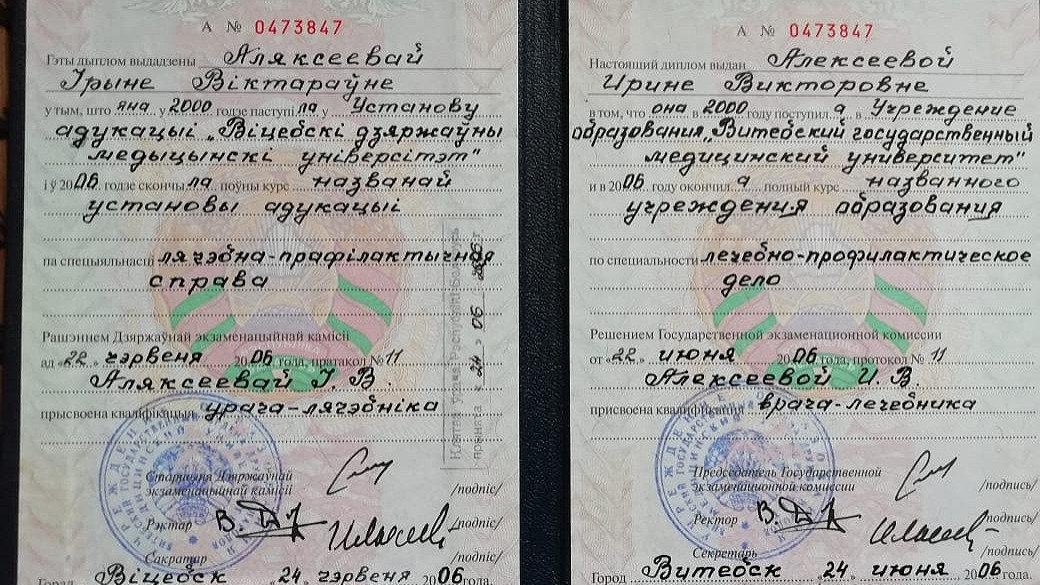 А № 0473847
Гэты дыплом выдадзены Аляксеевай
Ірыне Віктараўне
у тым, што яна у 2000 годзе паступіла у Установу
адукацыі „Віцебскі дзяржаўны
медыцынскі універсітэт"
і ў 2006 годзе скончыла поўны курс названай
установы адукацыі
па спецыяльнасці лячэбна-прафілактычная
справа
Рашэннем Дзяржаўнай экзаменацыйнай камісіі
ад „22" чэрвеня 2006 года, пратакол № 11
Аляксеевай І. В.
прысвоена кваліфікацыя урача-лячэбніка
Старшыня Дзяржаўнай
экзаменацыйнай камісіі /подпіс/
Рэктар /подпіс/
Сакратар /подпіс/
Горад Віцебск 24 чэрвеня 2006 года.
24 06 2006 г
А № 0473847
Настоящий диплом выдан Алексеевой
Ирине Викторовне
в том, что она 2000 году поступил а в Учреждение
образования „Витебский государственный
медицинский университет"
и в 2006 году окончил а полный курс названного
учреждения образования
по специальности лечебно-профилактическое
дело
Решением Государственной экзаменационной комиссии
от „22" июня 2006 года, протокол № 11
Алексеевой И. В.
присвоена квалификация врача-лечебника
Председатель Государственной
экзаменационной комиссии /подпись/
Ректор /подпись/
Секретарь /подпись/
Город Витебск 24 июня 2006 года.